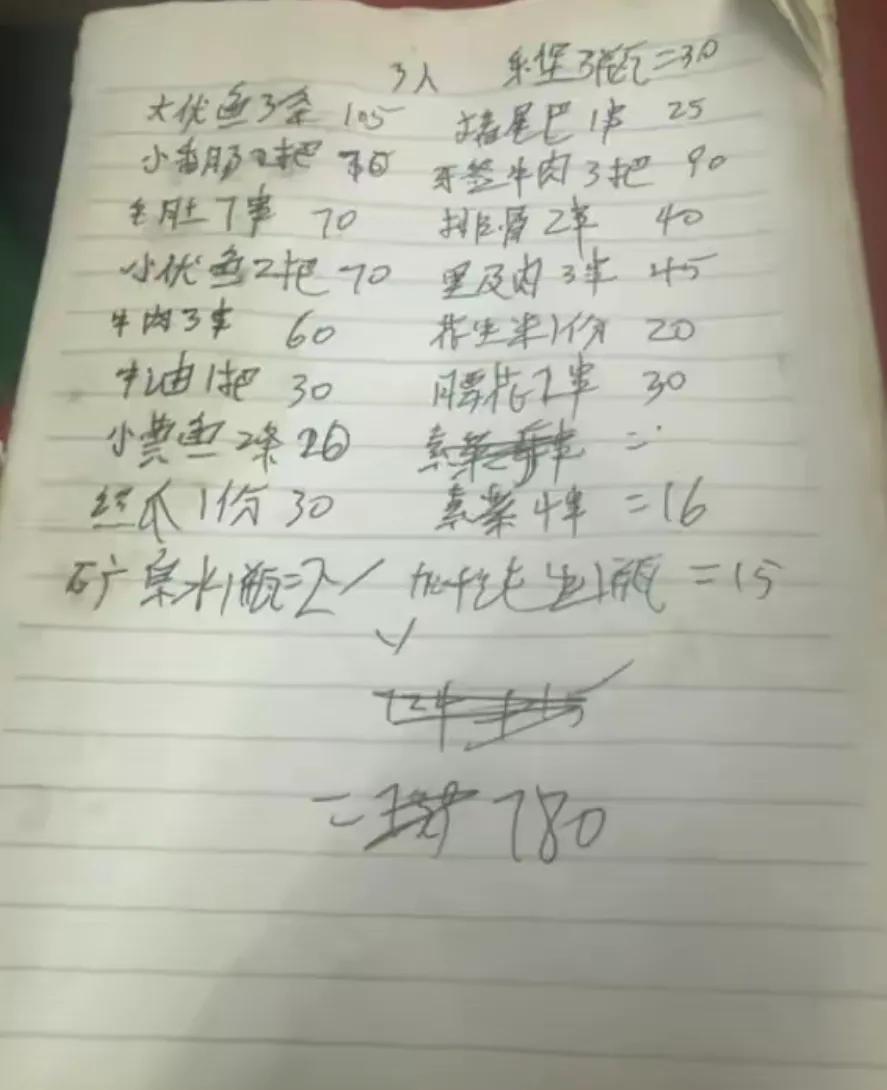 3人 乐堡3瓶=30
大优鱼3条 105 猪尾巴1串 25
小香肠2把 牙签牛肉3把 90
毛肚7串 70 排骨2串 40
小优鱼2把 70 里及肉3串 45
牛肉3串 60 花生米1份 20
牛油1把 30 腰花2串 30
小黄鱼2条 20 =
丝瓜1份 30 素菜4串 =16
矿泉水1瓶=2 纯生1瓶 =15
= 780